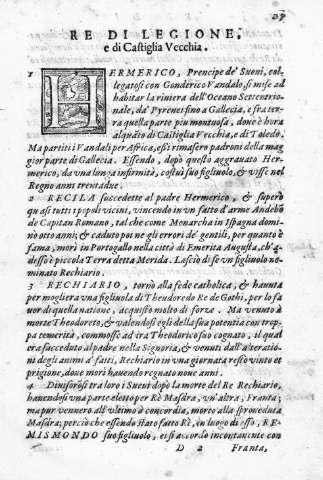 27
RE DI LEGIONE,
e di Castiglia Vecchia.
1 HERMERICO, Prencipe de' Sueui, col-
legatosi con Gonderico Vandalo, si mise ad
habitar la riuiera dell'Oceano Settentrio-
nale, de' Pyrenei fino a Gallecia, e fra ter-
ra quella parte piu montuosa, doue è hora
alquāto di Castiglia Vecchia, e di Toledo.
Ma partiti i Vandali per Africa, essi rimasero padroni della mag
gior parte di Gallecia. Essendo, dopò questo aggrauato Her-
merico, da vna lunga infirmità, costituì suo figliuolo, & visse nel
Regno anni trentadue.
2 RECILA succedette al padre Hermerico, & superò
quasi tutti i popoli vicini, vincendo in vn fatto d'arme Andebo
de Capitan Romano, tal che come Monarcha in Ispagna domi-
niò otto anni; & caduto poi ne gli errori de' gentili, per quanto è
fama, morì in Portogallo nella città di Emerita Augusta, ch'a-
desso è picciola Terra detta Merida. Lasciò di se vn figliuolo no-
minato Rechiario.
3 RECHIARIO, tornò alla fede catholica, & hauuta
per mogliera vna figliuola di Theodoredo Re de Gothi, per lo fa
uor di quella natione, acquistò molto di forze. Ma venuto à
morte Theodoreto, & valendosi egli della sua potentia con trop-
pa temerità, commosse ad ira Theodorico suo cognato, il qual
era succeduto al padre nella Signoria, & venuti dall'alteratio-
ni degli animi a' fatti, Rechiario in vna giornata restò vinto et
prigione, doue morì hauendo regnato noue anni.
4 Diuisorosi tra loro i Sueui dopò la morte del Re Rechiario,
hauendosi vna parte eletto per Rè Masdra, vn'altra, Franta;
ma pur vennero all'vltimo à concordia, morto alla sproueduta
Masdra; perciò che essendo stato fatto Rè, in luogo di esso, RE-
MISMONDO suo figliuolo, ei si accordò incontanente con
D 2 Franta,